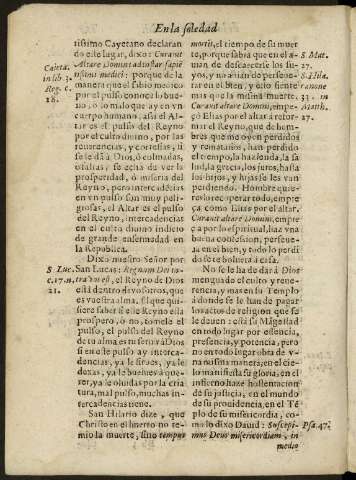 En la soledad
tissimo Cayetano declaran
do este lugar, dixo: Curavit
Altare Domini ad instar sapiē
tissimi medici: porque de la
manera que el sabio medico
por el pulso conoce lo bue-
no, ò lo malo que ay en vn
cuerpo humano, assi el Al-
tar es el pulso del Reyno
por el culto divino, por las
reverencias, y cortesias, si
se le dà à Dios, ò colmadas,
ò faltas, se echa de ver la
prosperidad, ò miseria del
Reyno, pero intercadencias
en vn pulso son muy peli-
grosas, el Altar es el pulso
del Reyno, intercadencias
en el culto divino indicio
de grande enfermedad en
la Republica.
Dixo nuestro Señor por
San Lucas: Regnum Dei in-
tra vos est, el Reyno de Dios
està dentro de vosotros, que
es vuestra alma, si se qui-
siere saber si esse Reyno està
prospero, ò no, tomele el
pulso, y el pulso del Reyno
de tu alma es tu fervor à Dios
si en este pulso ay interca-
dencias, ya le sirves, ya le
dexas, ya le buelves à que-
rer, ya le olvidas por la cria
tura, mal pulso, muchas in-
tercadencias tiene.
San Hilario dize, que
Christo en el huerto no te-
mio la muerte, sino tempus
Caieta.
in lib. 3.
Reg. c.
18.
S. Luc.
c. 17. n.
21.
mortis, el tiempo de su muer
te, porque sabia que en el a-
vian de descaecerse los su-
yos, y no avian de perseve-
rar en el bien, y esto siente
mas que la misma muerte.
Curavit altare Domini, empe-
çò Elias por el altar à refor-
mar el Reyno, que de hom-
bres que me oyen perdidos
y rematados, han perdido
el tiempo, la hazienda, la sa
lud, la gracia, los juros, hasta
los hijos, y hijas se les van
perdiendo. Hombre quie-
res lo recuperar todo, empie
ça como Elias por el altar.
Curavit altare Domini, empie
ça por lo espiritual, haz vna
buena confession, persevera
en el bien, y todo lo perdi
do se te bolverà à casa.
No se le ha de dar à Dios
menguada el culto y reve-
rencia, y mas en su Templo
à donde se le han de pagar
los actos de religion que se
le deven: està su Magestad
en todo lugar por essencia,
presencia, y potencia, pero
no en todo lugar obra de v-
na misma manera, en el cie-
lo manifiesta su gloria, en el
infierno haze hostentacion
de su justicia, en el mundo
de su providencia, en el Tē
plo de su misericordia, co-
mo lo dixo David: Suscepi-
mus Deus misericordiam, in
medio
S. Mat.
27.
S. Hila.
canone
33. in
Matth.
27.
Psa. 47.